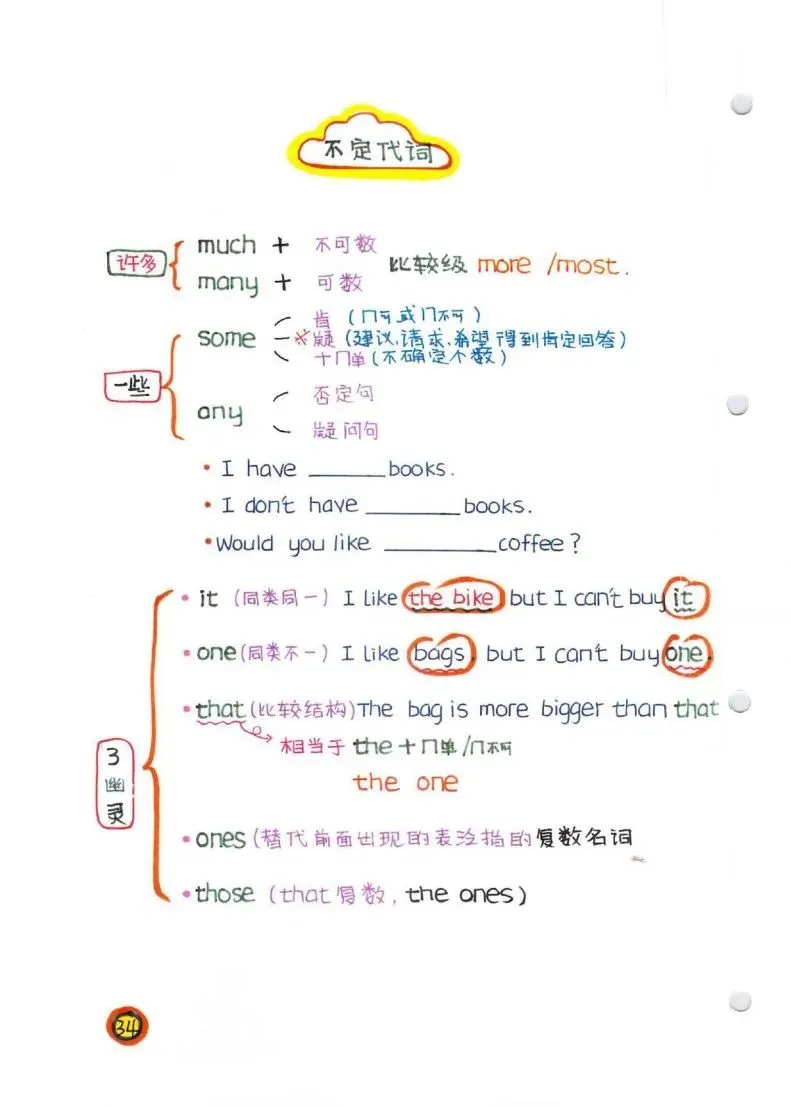 不定代词
许多
much + 不可数
many + 可数
比较级 more /most.
一些
some
肯 (n可或n不可)
※疑 (建议,请求,希望得到肯定回答)
+n单(不确定个数)
any
否定句
疑问句
• I have ______books.
• I don't have ________books.
•Would you like _________coffee?
3幽灵
• it (同类同一) I like the bike but I can't buy it
• one(同类不一) I like bags, but I can't buy one.
• that(比较结构)The bag is more bigger than that
相当于 the + n单/n不可
the one
• ones (替代前面出现的表泛指的复数名词
• those (that复数, the ones)
34